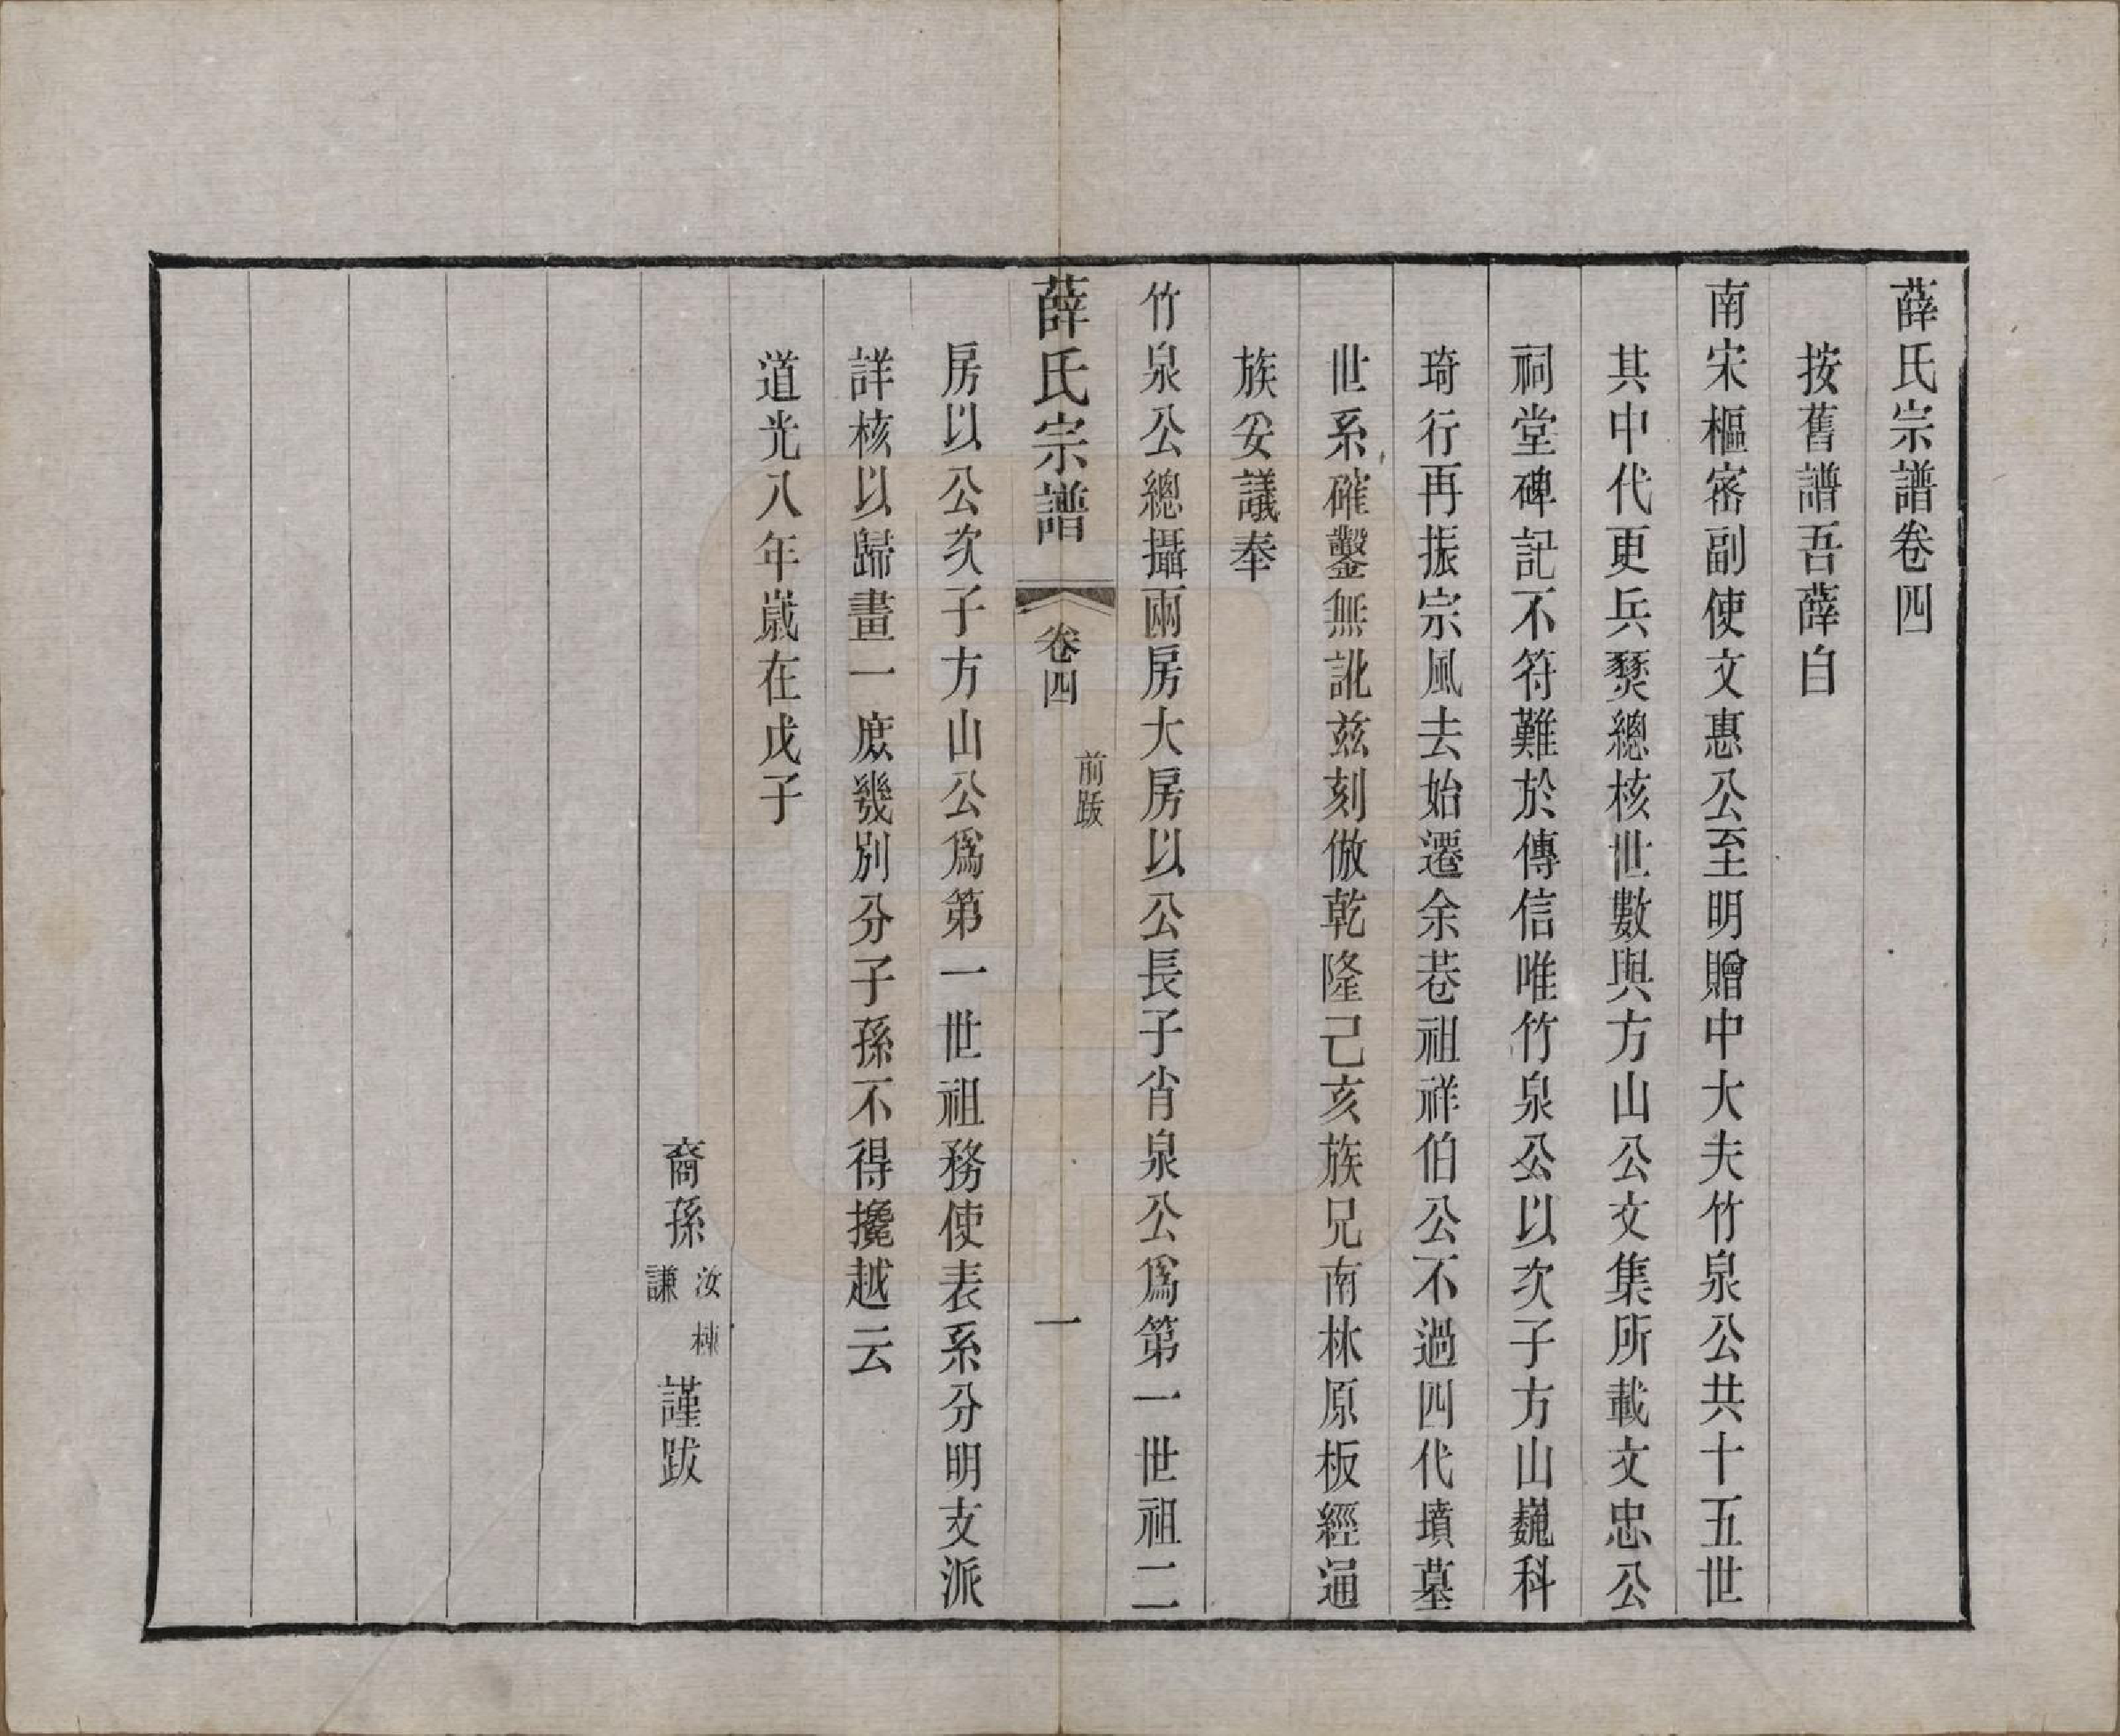 薛氏宗譜卷四
按舊譜吾薛自
南宋樞密副使文惠公至明贈中大夫竹泉公共十五世
其中代更兵燹總核世數與方山公文集所載文忠公
祠堂碑記不符難於傳信唯竹泉公以次子方山巍科
琦行再振宗風去始遷余巷祖祥伯公不過四代墳墓
世系確鑿無訛兹刻倣乾隆己亥族兄南林原板經通
族公議奉
竹泉公總攝兩房大房以公長子肖泉公爲第一世祖二
薛氏宗譜
卷四
前跋
一
房以公次子方山公爲第一世祖務使表系分明支派
詳核以歸畫一庶幾別分子孫不得攙越云
道光八年歲在戊子
裔孫
汝棟
謙
謹跋